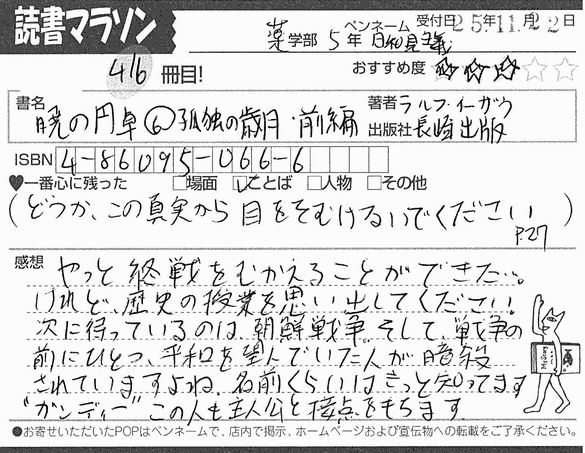 読書マラソン
薬学部 5年 ペンネーム 日和見主義 受付日 25年11月22日
416冊目! おすすめ度 ☆☆☆☆☆
書名 暁の円卓⑥孤独の歳月・前編 著者 ラルフ・イーザウ
出版社 長崎出版
ISBN 4-86095-066-6
♥一番心に残った □場面 ☑ことば □人物 □その他
(どうか、この真実から目をそむけないでください P27)
感想 やっと終戦をむかえることができた…。
けれど、歴史の授業を思い出してください。
次に待っているのは、朝鮮戦争、そして、戦争の
前にひとつ、平和を望んでいた人が暗殺
されていますよね。名前くらいはきっと知ってます
"ガンディー"この人も主人公と接点をもちます。
●お寄せいただいたPOPはペンネームで、店内で掲示、ホームページおよび宣伝物への転載をご了承ください。